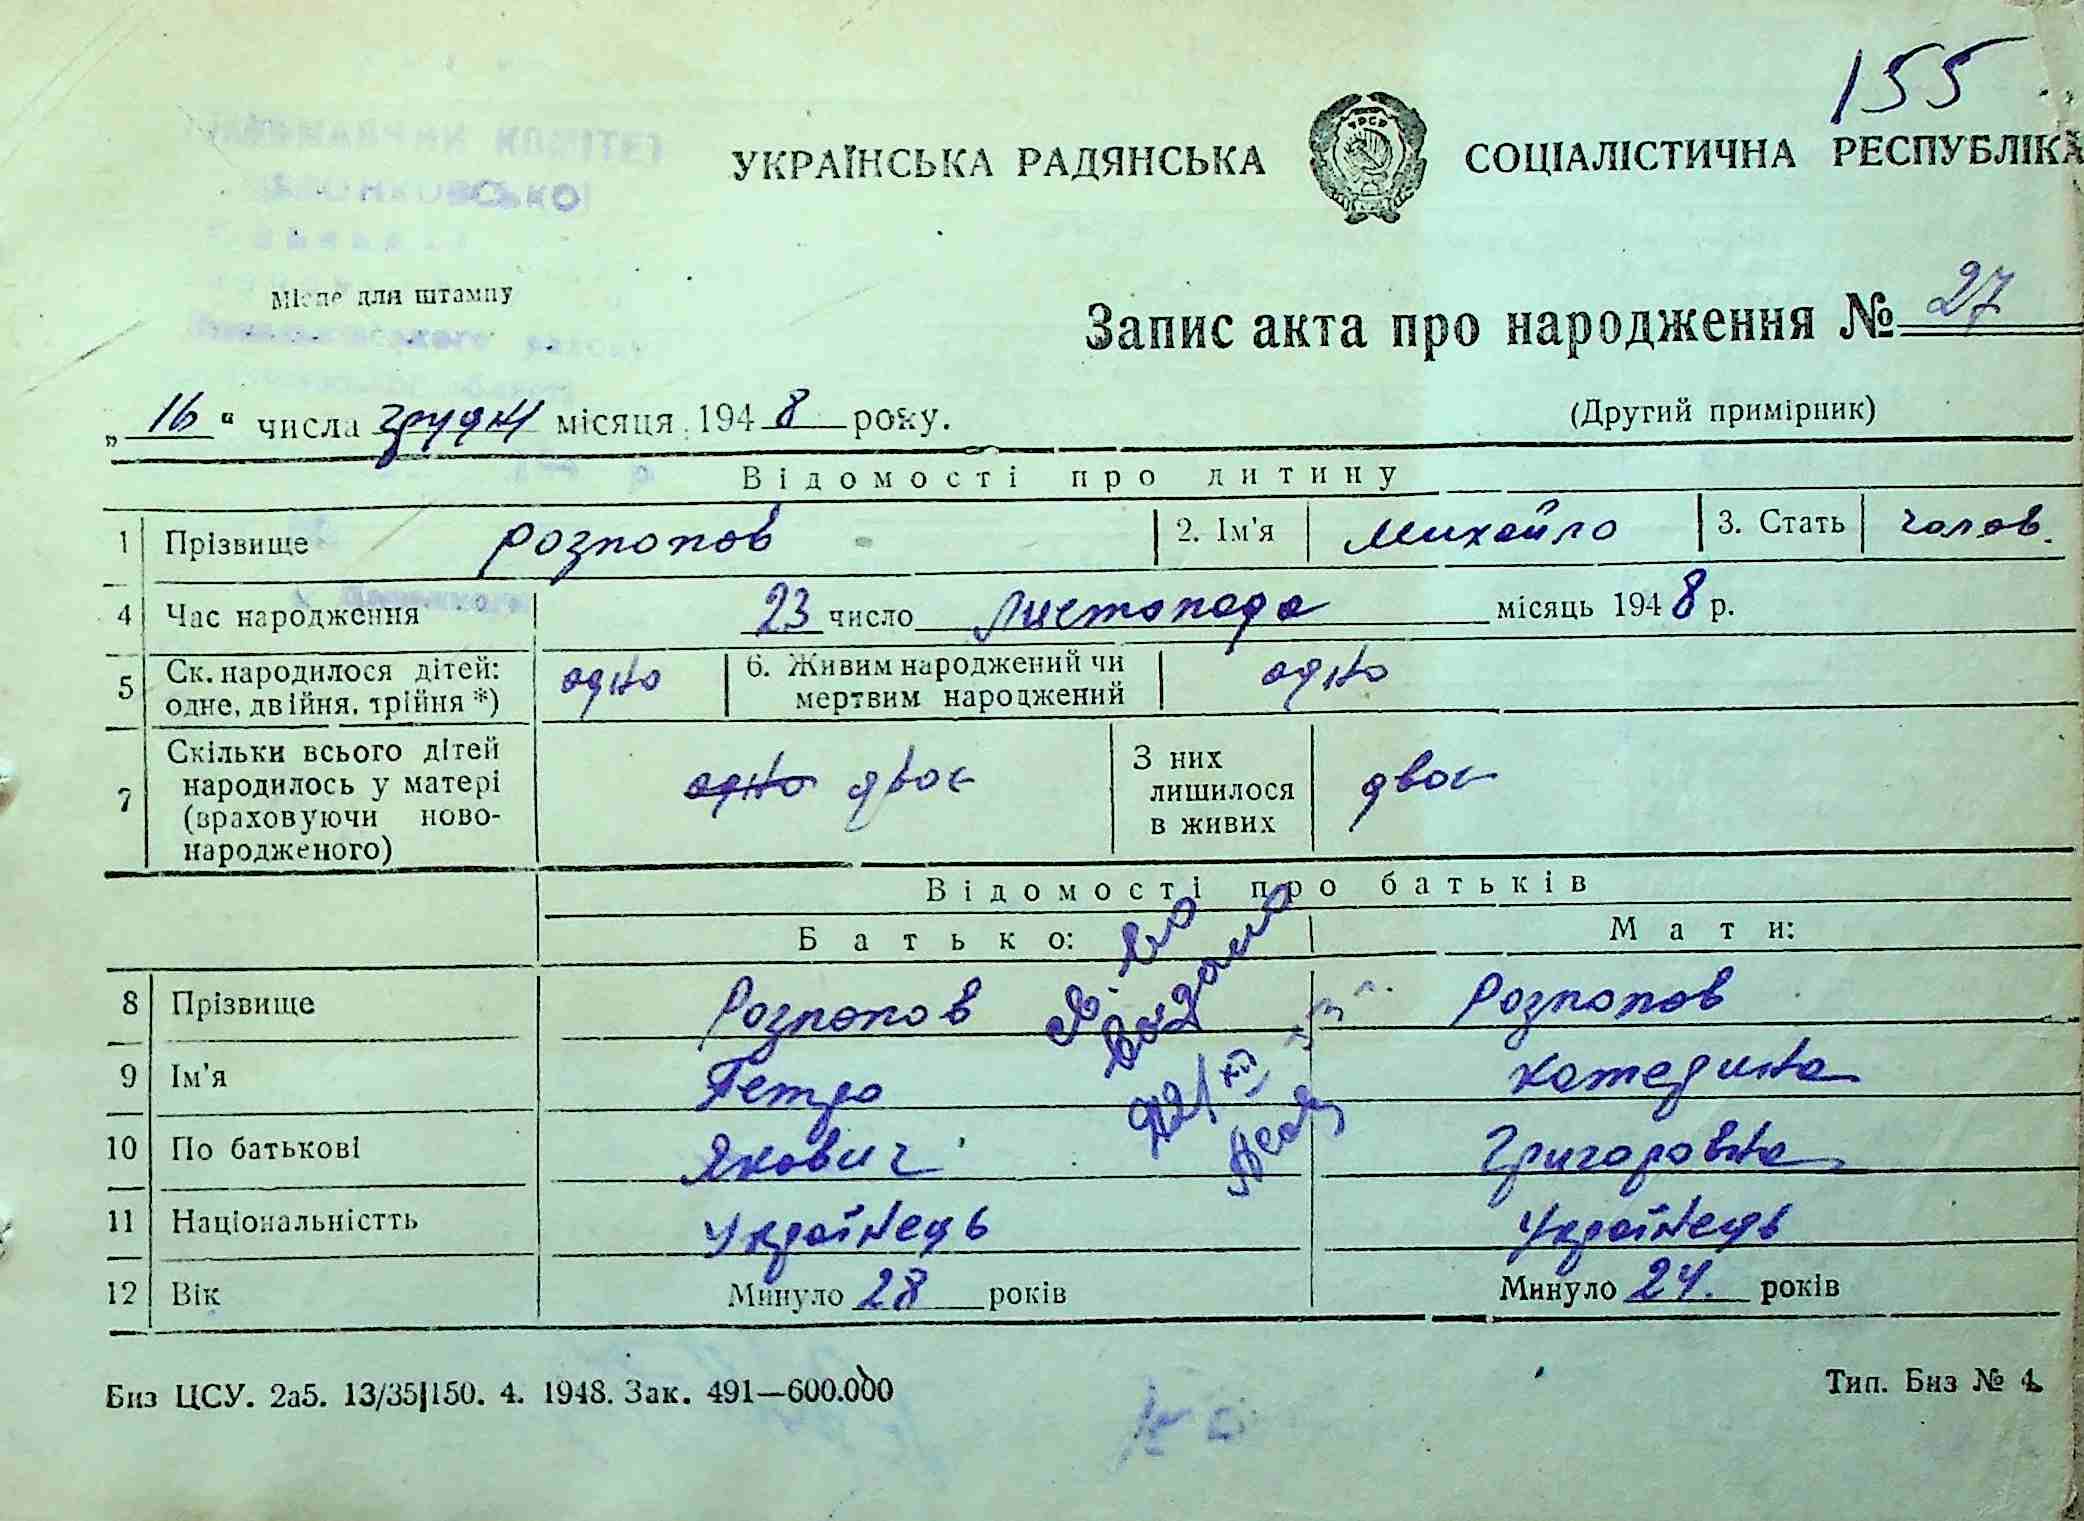 155
УКРАЇНСЬКА РАДЯНСЬКА СОЦІАЛІСТИЧНА РЕСПУБЛІКА
Місце для штампу
Запис акта про народження № 27
„16“ числа грудня місяця 1948 року.
(Другий примірник)
Відомості про дитину
1 Прізвище Розпопов 2. Ім'я Михайло 3. Стать чолов.
4 Час народження 23 число листопада місяць 1948 р.
5 Ск. народилося дітей: одне, двійня, трійня *) одно 6. Живим народжений чи мертвим народжений одно
7 Скільки всього дітей народилось у матері (враховуючи ново-народженого) одно двоє З них лишилося в живих двоє
Відомості про батьків
Батько: Мати:
8 Прізвище Розпопов Розпопов
9 Ім'я Петро Катерина
10 По батькові Якович Григоровна
11 Національністть Українець Українець
12 Вік Минуло 28 років Минуло 24. років
Биз ЦСУ. 2а5. 13/35|150. 4. 1948. Зак. 491—600.000
Тип. Биз № 4.